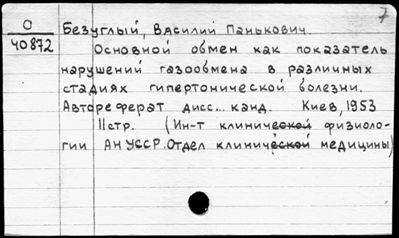 7
О
40872
Безуглый, Василий Панькович.
Основной обмен как показатель
нарушений газообмена в различных
стадиях гипертонической болезни.
Автореферат дисс... канд. Киев, 1953
11стр. (Ин-т клинической физиоло-
гии АН УССР. Отдел клинической медицины)